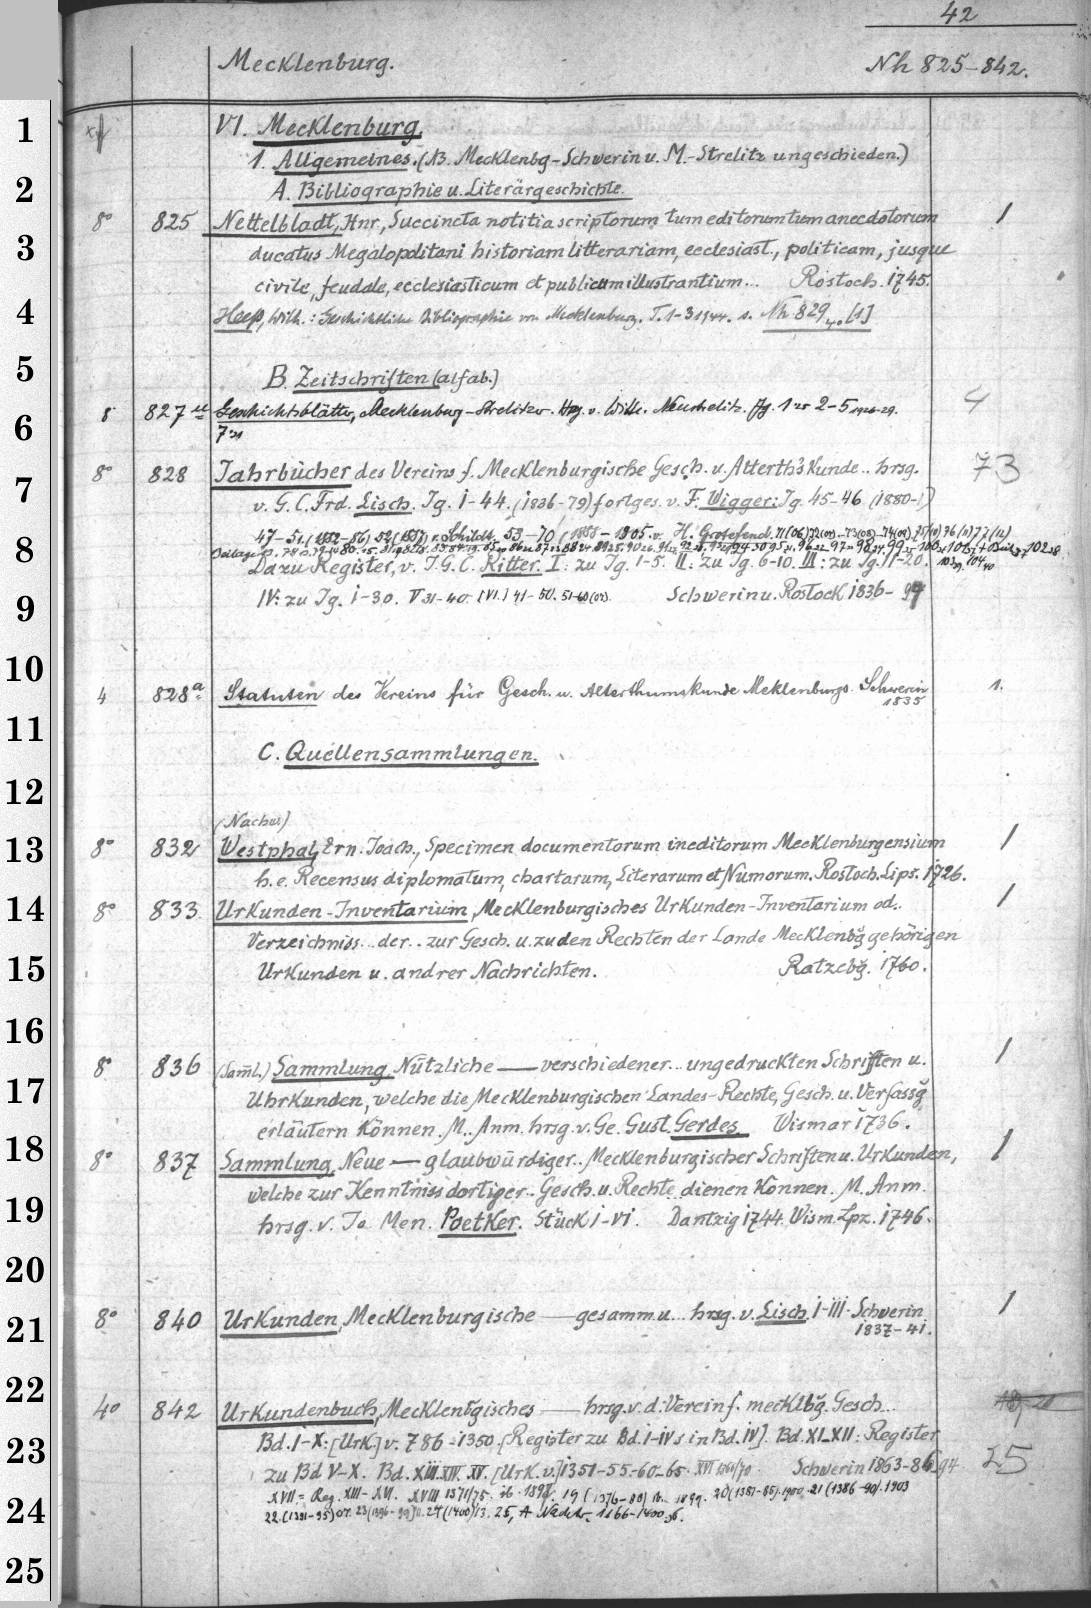 42
Mecklenburg. Nh 825-842.
1 VI. Mecklenburg.
1. Allgemeines. (NB. Mecklenbg-Schwerin u. M.-Strelitz ungeschieden.)
2 A. Bibliographie u. Literärgeschichte.
8° 825 Nettelbladt, Hnr., Succincta notitia scriptorum tum editorum tum anecdotorum 1
3 ducatus Megalopolitani historiam litterariam, ecclesiast., politicam, jusque
civile, feudale, ecclesiasticum et publicum illustrantium... Rostoch. 1745.
4 Heeß, Wilh.: Geschichtliche Bibliographie von Mecklenburg. T. 1-3 1944. s. Nh 829 4° [1]
5 B. Zeitschriften (alfab.)
8 827 Geschichtsblätter, Mecklenburg-Strelitzer. Hrg. v. Wilh. Neustrelitz. Jg. 1 2-5 1926-29. 4
6 7
8° 828 Jahrbücher des Vereins f. Mecklenburgische Gesch. u. Alterth's Kunde.. hrsg. 73
7 v. G. C. Frd. Lisch. Jg. 1-44. (1836-79) fortges. v. F. Wigger: Jg. 45-46 (1880-1)
47-51 (1882-86) 52 (1887) v. Schildt. 53-70 (1888-1905. v. H. Grotefend.
8 Dazu Register, v. J. G. C. Ritter. I: zu Jg. 1-5. II: zu Jg. 6-10. III: zu Jg. 11-20.
9 IV: zu Jg. 1-30. V 31-40. [VI.] 41-50. 51-60 Schwerin u. Rostock 1836-
10
4 828a Statuten des Vereins für Gesch. u. Alterthumskunde Meklenburgs. Schwerin 1.
1835
11
C. Quellensammlungen.
12
(Nachw)
13 8° 832 Westphal, Ern. Joach., Specimen documentorum ineditorum Mecklenburgensium 1
h. e. Recensus diplomatum, chartarum, Literarum et Numorum. Rostoch. Lips. 1726.
14 8° 833 Urkunden-Inventarium, Mecklenburgisches Urkunden-Inventarium od.. 1
Verzeichniss... der.. zur Gesch. u. zu den Rechten der Lande Mecklenbg gehörigen
15 Urkunden u. andrer Nachrichten. Ratzebg. 1760.
16
8° 836 (Saml.) Sammlung, Nützliche — verschiedener... ungedruckten Schriften u. 1
17 Uhrkunden, welche die Mecklenburgischen Landes-Rechte, Gesch. u. Verfassg
erläutern können. M. Anm. hrsg. v. Ge. Gust. Gerdes. Wismar 1736.
18 8° 837 Sammlung, Neue — glaubwürdiger.. Mecklenburgischer Schriften u. Urkunden, 1
welche zur Kenntniss dortiger.. Gesch. u. Rechte dienen können. M. Anm.
19 hrsg. v. Jo Men. Poetker. Stück I-VI. Dantzig 1744. Wism. Lpz. 1746.
20
8° 840 Urkunden, Mecklenburgische — gesamm u... hrsg. v. Lisch. I-III. Schwerin 1
21 1837-41.
22
4° 842 Urkundenbuch, Mecklenbgisches — hrsg. v. d. Verein f. mecklbg. Gesch..
23 Bd. I-X: [Urk.] v. 786-1350. [Register zu Bd. I-IV s in Bd. IV]. Bd. XI-XII: Register 25
zu Bd V-X. Bd. XIII. XIV. XV. [Urk. v.] 1351-55-60-65. XVI 1366/70. Schwerin 1863-
24 XVII = Reg. XIII-XVI. XVIII 1371/75. 1897. 19 (1376-80) 1899. 20 (1381-85) 1900. 21 (1386-90) 1903
22. (1391-95) 07. 23 (1396-99) 24 (1400) 13. 25, A Nachtr. 1166-1400
25